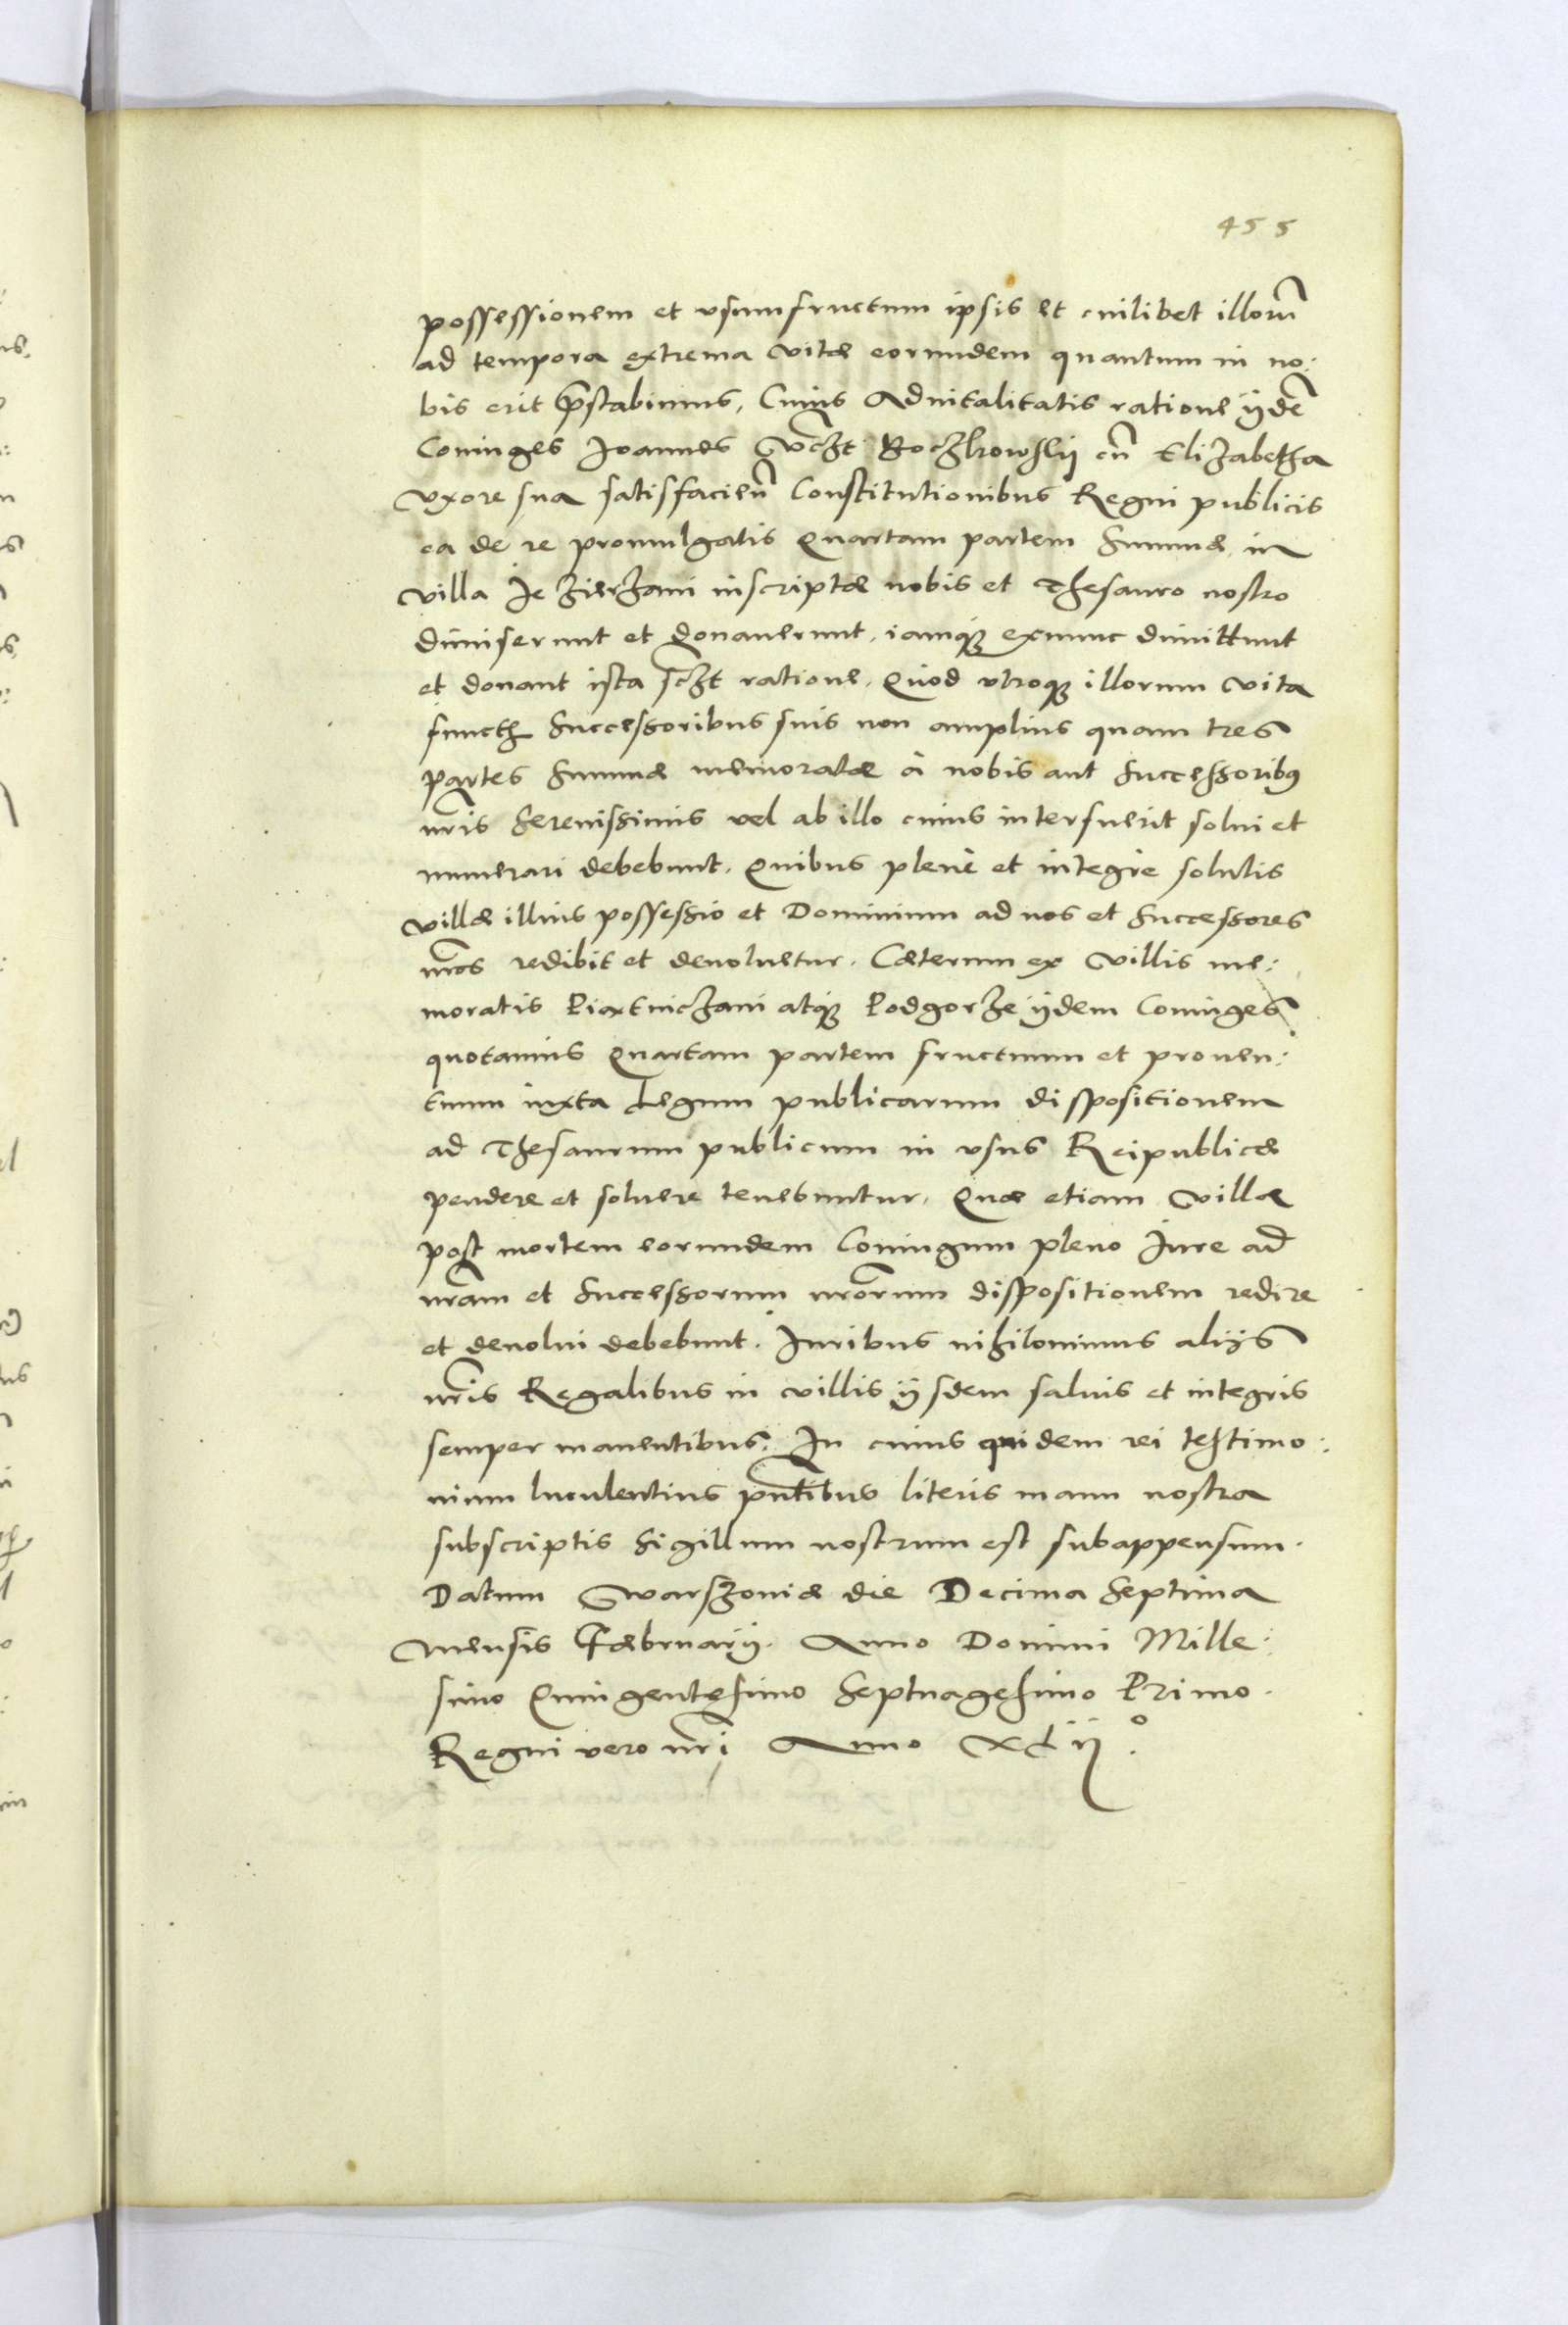 455
possessionem et vsumfructum ipsis et cuilibet illorũ
ad tempora extrema vitæ eorundem quantum in no:
bis erit p̃stabimus. Cuius Aduitalitatis ratione ijdẽ
Coniuges Joannes Boczkowskij cũ Elizabetha
vxore sua satisfacieñ Constitutionibus Regni publicis
ea de re promulgatis Quartam partem Summæ in
villa Jezierzani inscriptæ nobis et Thesauro nostro
dimiserunt et donauerunt. iamq̃ exnunc dimittunt
et donant ista sczt ratione. Quod vtroq̃ illorum vita
functis Successoribus suis non amplius quam tres
partes Summæ memoratæ à nobis aut Successoribus
nr̃is Serenissimis vel ab illo cuius interfuerit solui et
numerari debebunt. Quibus plenè et integrè solutis
villæ illius possessio et Dominium ad nos et Successores
nr̃os redibit et deuoluetur. Cæterum ex villis me:
moratis Piatniczani atq̃ Podgorze ijdem Coniuges
quotannis Quartam partem fructuum et prouen:
tuum iuxta Legum publicarum dispositionem
ad Thesaurum publicum in vsus Reipublicæ
pendere et soluere tenebuntur. Quæ etiam villæ
post mortem eorundem Coniugum pleno Iure ad
nr̃am et Successorum nr̃orum dispositionem redire
et deuolui debebunt. Iuribus nihilominus alijs
nr̃is Regalibus in villis ijsdem saluis et integris
semper manentibus. In cuius quidem rei testimo:
nium luculentius pñtibus literis manu nostra
subscriptis Sigillum nostrum est subappensum.
Datum Warszouiæ die Decima Septima
Mensis Februarij. Anno Domini Mille:
simo Quingentesimo Septuagesimo Primo.
Regni vero nr̃i Anno xlij.º